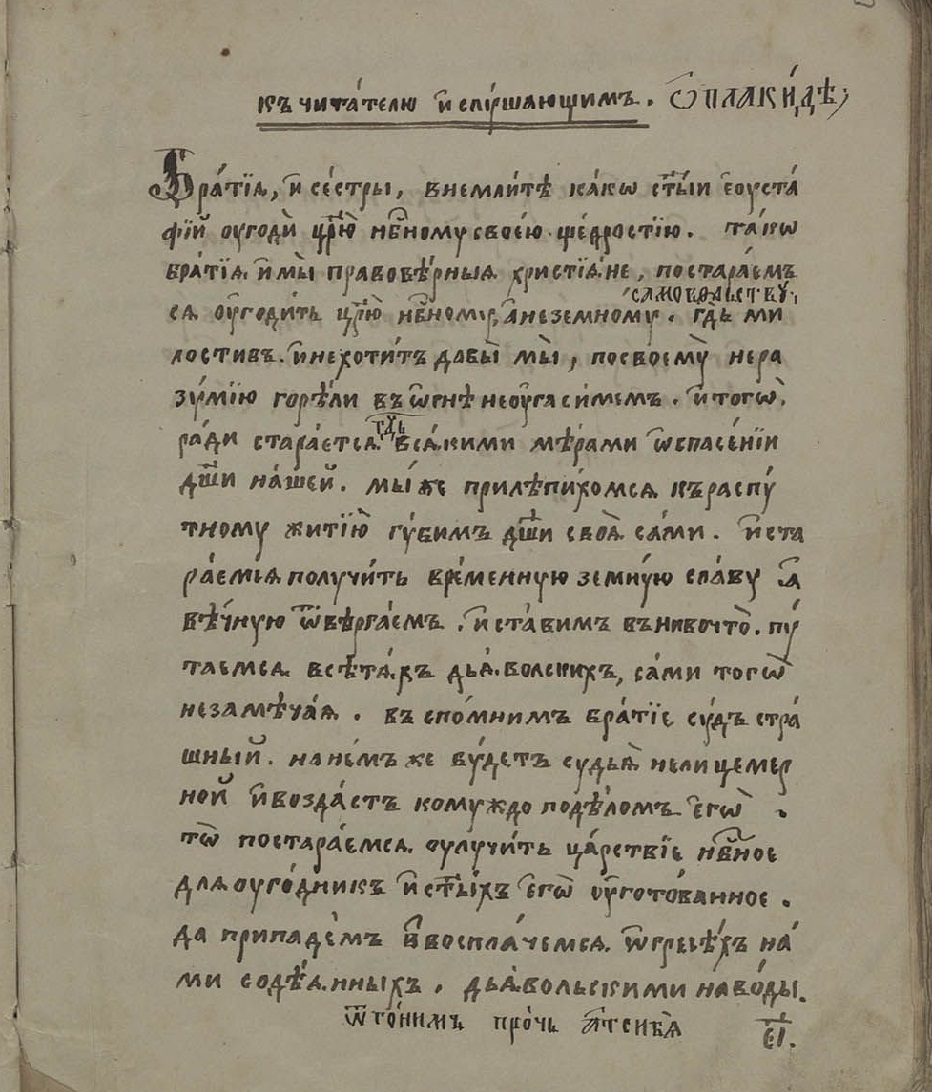 къ чита́телю и҆слы́шающимъ. Ѡ҆ плаки́дѣ;
Бра́тїѧ, и҆ се́стры, внемли́тѣ ка́кѡ ст҃ы́и є҆оуста́
фїй оугоди̇̀ цр҃ю̀ нб҃ному свое́ю ще́дростїю. та́кѡ
бра́тїѧ и҆ мы̀ правовѣ́рныѧ христїѧ́не, постара́емъ
самовольству;
сѧ оу҆годи́ть цр҃ю̀ нб҃ному, а҆неземному. гд҃ь ми
лостивъ. и҆нехоти́тъ дабы̀ мы̀, посвоемꙋ̀ нера
зꙋ́мїю горѣ́ли въ ѡ҆гнѣ̀ неоу҆гаси́мемъ. и҆тогѡ̀
гд҃ь
ра́ди стара́етсѧ всѧ́кими мѣ́рами ѡ҆спасе́нїи
дш҃и на́шей. мы́ же прилѣпи́хомсѧ къраспꙋ́
тному житїю̀ гꙋ́бимъ дш҃и своѧ̀ са́ми. и҆ста
ра́емсѧ получи́ть вре́менную земнꙋ́ю сла́ву а҆
вѣ́чную ѿвѣрга́емъ. и҆ста́вимъ внивочто̀. пꙋ́
таемсѧ всѣтѧ́хъ дьѧ́волскихъ, са́ми тогѡ̀
незамѣча́ѧ. въ спо́мнимъ бра́тїе сꙋ́дъ стра́
шный. на не́мъ же бꙋ́детъ судьѧ̀ нелицемер
ной и҆возда́стъ комуждо подѣ́ломъ є҆гѡ̀
тѡ̀ постара́емсѧ оулучи́ть ца́рствїе нб҃ное
для оуго́дникъ и҆ ст҃ы́хъ є҆гѡ̀ оу҆гото́ванное.
да припаде́мъ и҆ воспла́чемсѧ ѡ҆ грьѣ́хъ на́
ми содѣ́ѧнныхъ. дьѧ́вольскими наво́ды.
ѿго́нимъ про́чь ѿ себѧ̀ є҃і.